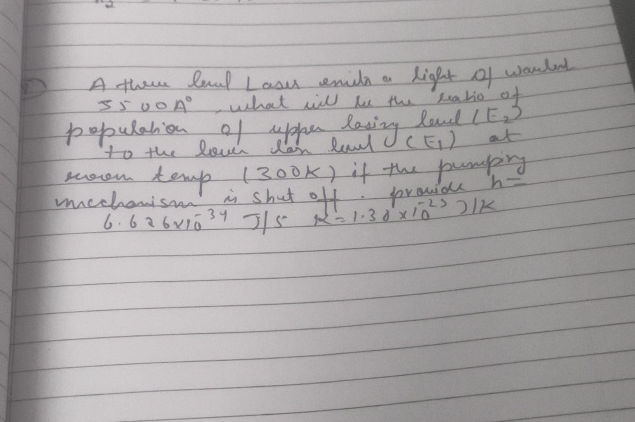 A three level Laser emits a light of wavelent
5500A° what will be the ratio of
population of upper lasing level (E2)
to the lower lasn level (E1) at
room temp (300K) if the pumping
mechanism is shut off. provide h=
6.626x10^-34 J/S K=1.38x10^-23 J/K